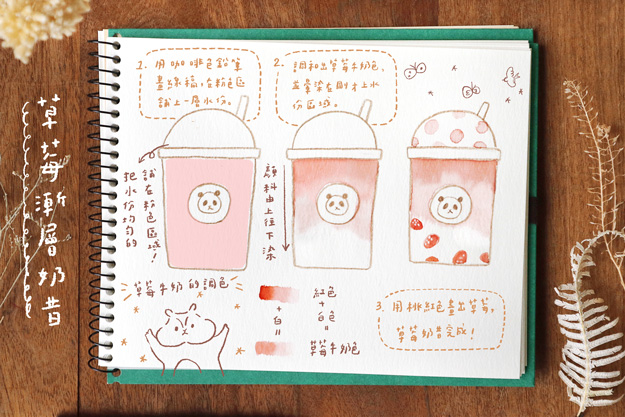 草莓漸層奶昔
1. 用咖啡色鉛筆
畫線稿,在粉色區
試上一層水份。
2. 調和出草莓牛奶色,
並暈染在剛才上水
份區域。
把水份均勻的
試在粉色區域!
顏料由上往下染
草莓牛奶的調色
紅色
+白=
+白色=
草莓牛奶色
3. 用桃紅色畫草莓,
草莓奶昔完成!